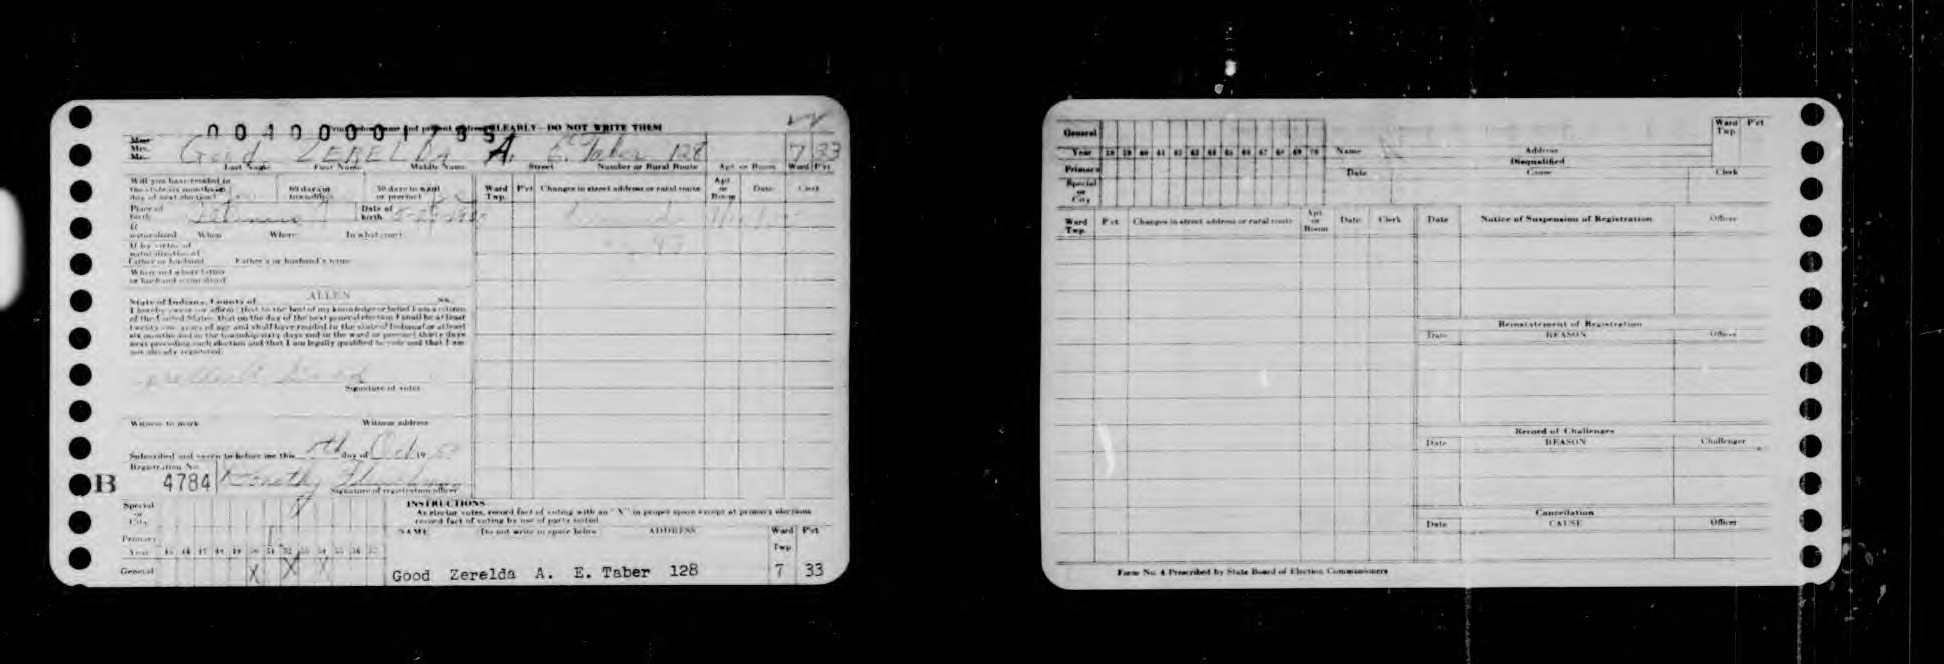 00400001785
Print your name and present address CLEARLY - DO NOT WRITE THEM
Miss
Mrs.
Mr.
Good ZERELDA A. E. Taber 128 7 33
Last Name First Name Middle Name Street Number or Rural Route Apt. or Room Ward P'ct
Will you have resided in
the state six months on
day of next election?
60 days in
township
30 days in ward
or precinct
Place of
birth
Illinois
Date of
birth
If
naturalized When Where In what court
If by virtue of
naturalization of
Father or husband Father's or husband's name
When and where father
or husband naturalized
State of Indiana, County of ALLEN ss.
I hereby swear (or affirm) that to the best of my knowledge or belief I am a citizen
of the United States, that on the day of the next general election I shall be at least
twenty-one years of age and shall have resided in the state of Indiana for at least
six months and in the township sixty days and in the ward or precinct thirty days
next preceding such election and that I am legally qualified to vote and that I am
not already registered.
Good
Signature of voter
Witness to mark Witness address
Subscribed and sworn to before me this day of Oct 19
Registration No.
B 4784 Dorothy
Signature of registration officer
Ward
Twp.
P'ct
Changes in street address or rural route
Apt.
or
Room
Date
Clerk
Special
or
City
Primary
Year 45 46 47 48 49 50 51 52 53 54 55 56 57
General X X X
INSTRUCTIONS
As elector votes, record fact of voting with an "X" in proper space except at primary elections
record fact of voting by use of party voted
NAME Do not write in space below ADDRESS Ward Twp. P'ct
Good Zerelda A. E. Taber 128 7 33
General
Year 58 59 60 61 62 63 64 65 66 67 68 69 70
Primary
Special
or
City
Name Address
Disqualified
Date Cause Clerk
Ward
Twp.
P'ct
Ward
Twp.
P'ct
Changes in street address or rural route
Apt.
or
Room
Date
Clerk
Date Notice of Suspension of Registration Officer
Reinstatement of Registration
Date REASON Officer
Record of Challenges
Date REASON Challenger
Cancellation
Date CAUSE Officer
Form No. 4 Prescribed by State Board of Election Commissioners